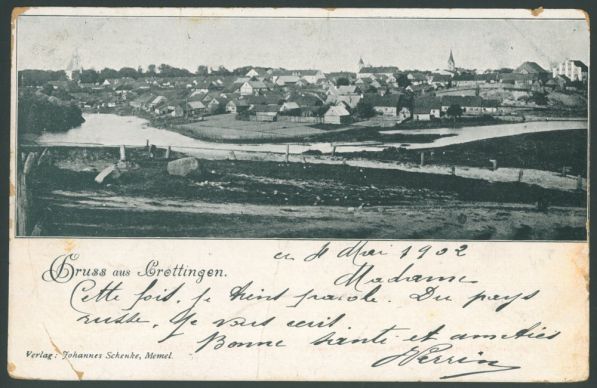 ce 4 Mai 1902
Madame
Gruss aus Crottingen.
Cette fois, je tiens parole. Du pays
russe, je vous ecris
Bonne Santé et amitiés
Perrin
Verlag: Johannes Schenke, Memel.